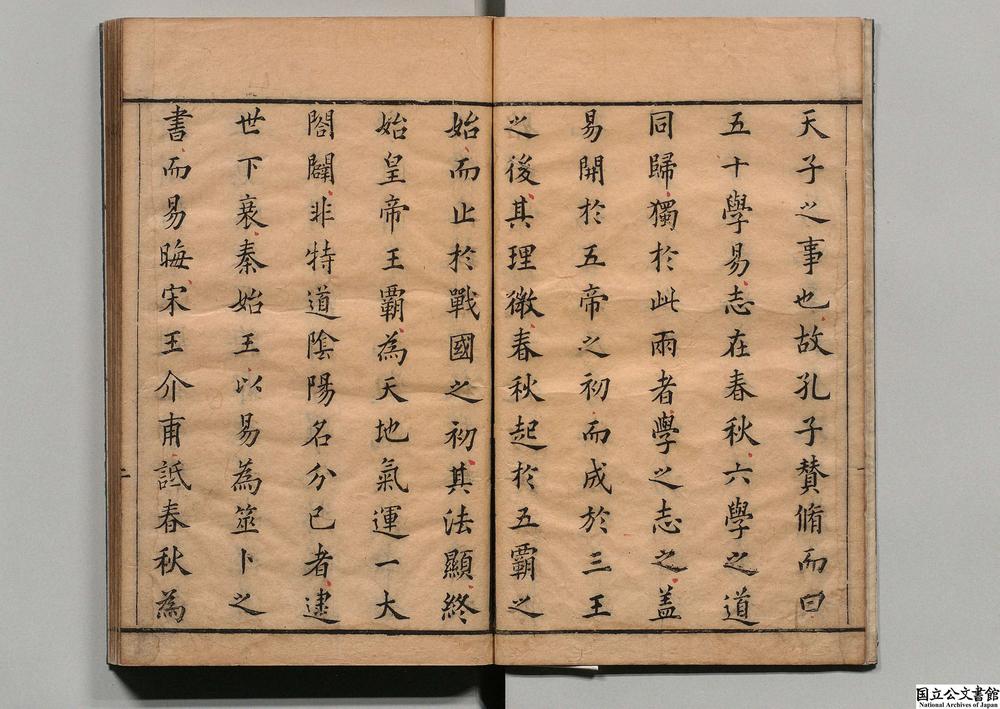 天子之事也故孔子賛脩而曰
五十學易志在春秋六學之道
同歸獨於此兩者學之志之盖
易開於五帝之初而成於三王
之後其理微春秋起於五霸之
始而止於戰國之初其法顯終
始皇帝王霸為天地氣運一大
閤闢非特道陰陽名分已者逮
世下衰秦始王以易為筮卜之
書而易晦宋王介甫詆春秋為
一
二
国立公文書館
National Archives of Japan